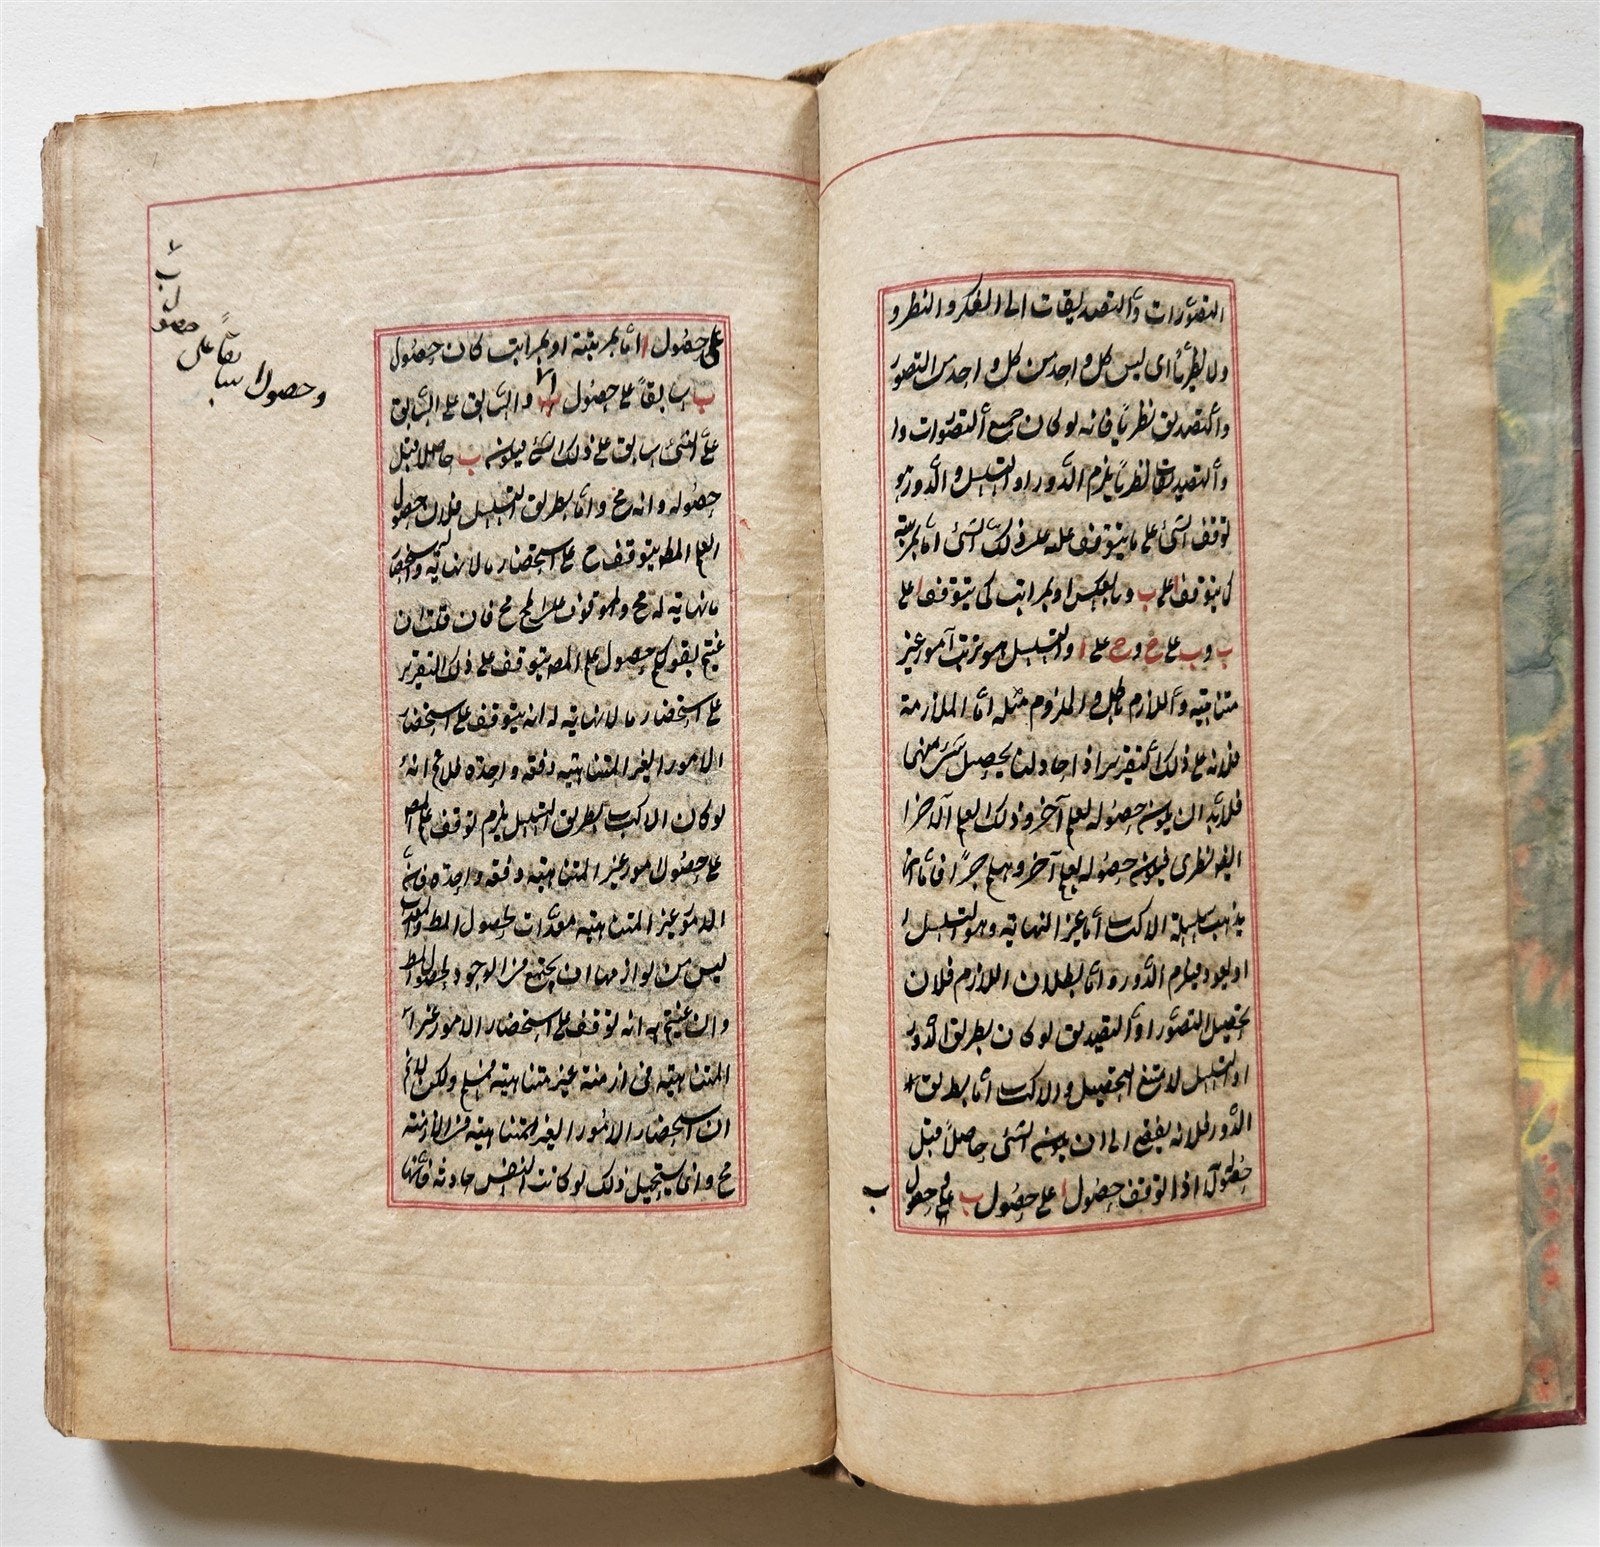 التصوّرات والتصديقات الى الفكر والنظر و
ولا نظريّاً اى ليس كل واحد من كل واحد من التصور
والتصديق نظرياً فانه لو كان جميع التصوّرات وا
والتصديقات نظرياً يلزم الدّور او التسلسل والدّور هو
توقف الشئ على ما يتوقف عليه ذلك الشئ امّا بمرتبة
كما يتوقف ا على ب وبالعكس او بمراتب كما يتوقف ا على
ب و ب على ج و ج على ا والتسلسل هو ترتب امور غير
متناهية واللازم باطل والملزوم مثله امّا الملازمة
فلانه على ذلك التقدير اذا حاولنا تحصيل شئ منهما
فلا بدّ ان يكون حصوله بعلم آخر وذلك العلم الآخر ا
ايضا نظرى فيكون حصوله بعلم آخر وهلم جرّاً فامّا ان
يذهب سلسلة الاكتساب الى غير النهاية وهو التسلسل
او يعود فيلزم الدّور وامّا بطلان اللازم فلان
تحصيل التصوّر او التصديق لو كان بطريق الدّور
او التسلسل لامتنع التحصيل والاكتساب امّا بطريق
الدّور فلانه يفضى الى ان يكون الشئ حاصلاً قبل
حصوله اذا توقف حصول ا على حصول ب وعلى حصول
ب
على حصول ا امّا بمرتبة او بمراتب كان حصول
ب سابقاً على حصول ا والسّابق على السّابق
على الشئ سابق على ذلك الشئ فيكون ب حاصلا قبل
حصوله وانه مح وامّا بطريق التسلسل فلان حصول
العلم المط يتوقف ح على استحضار ما لا نهاية له واستحضار
ما لا نهاية له مح والموقوف على المح مح فان قلت ان
عنيتم بقولكم حصول علم المط يتوقف على ذلك التقدير
على استحضار ما لا نهاية له انه يتوقف على استحضار
الامور الغير المتناهية دفعة واحدة فلا نم انه
لو كان الاكتساب بطريق التسلسل يلزم توقف علم المط
على حصول امور غير المتناهية دفعة واحدة فان
الامور غير المتناهية معدّات لحصول المط والمعدات
ليس من لوازمها ان يجتمع فى الوجود لحصول المط
وان عنيتم به انه توقف على استحضار الامور غير
المتناهية فى ازمنة غير متناهية فمسلم ولكن لا نم
ان استحضار الامور الغير المتناهية فى الازمنة
مح وانما يستحيل ذلك لو كانت النفس حادثة فانها
وحصول ا سابقاً على حصول ب